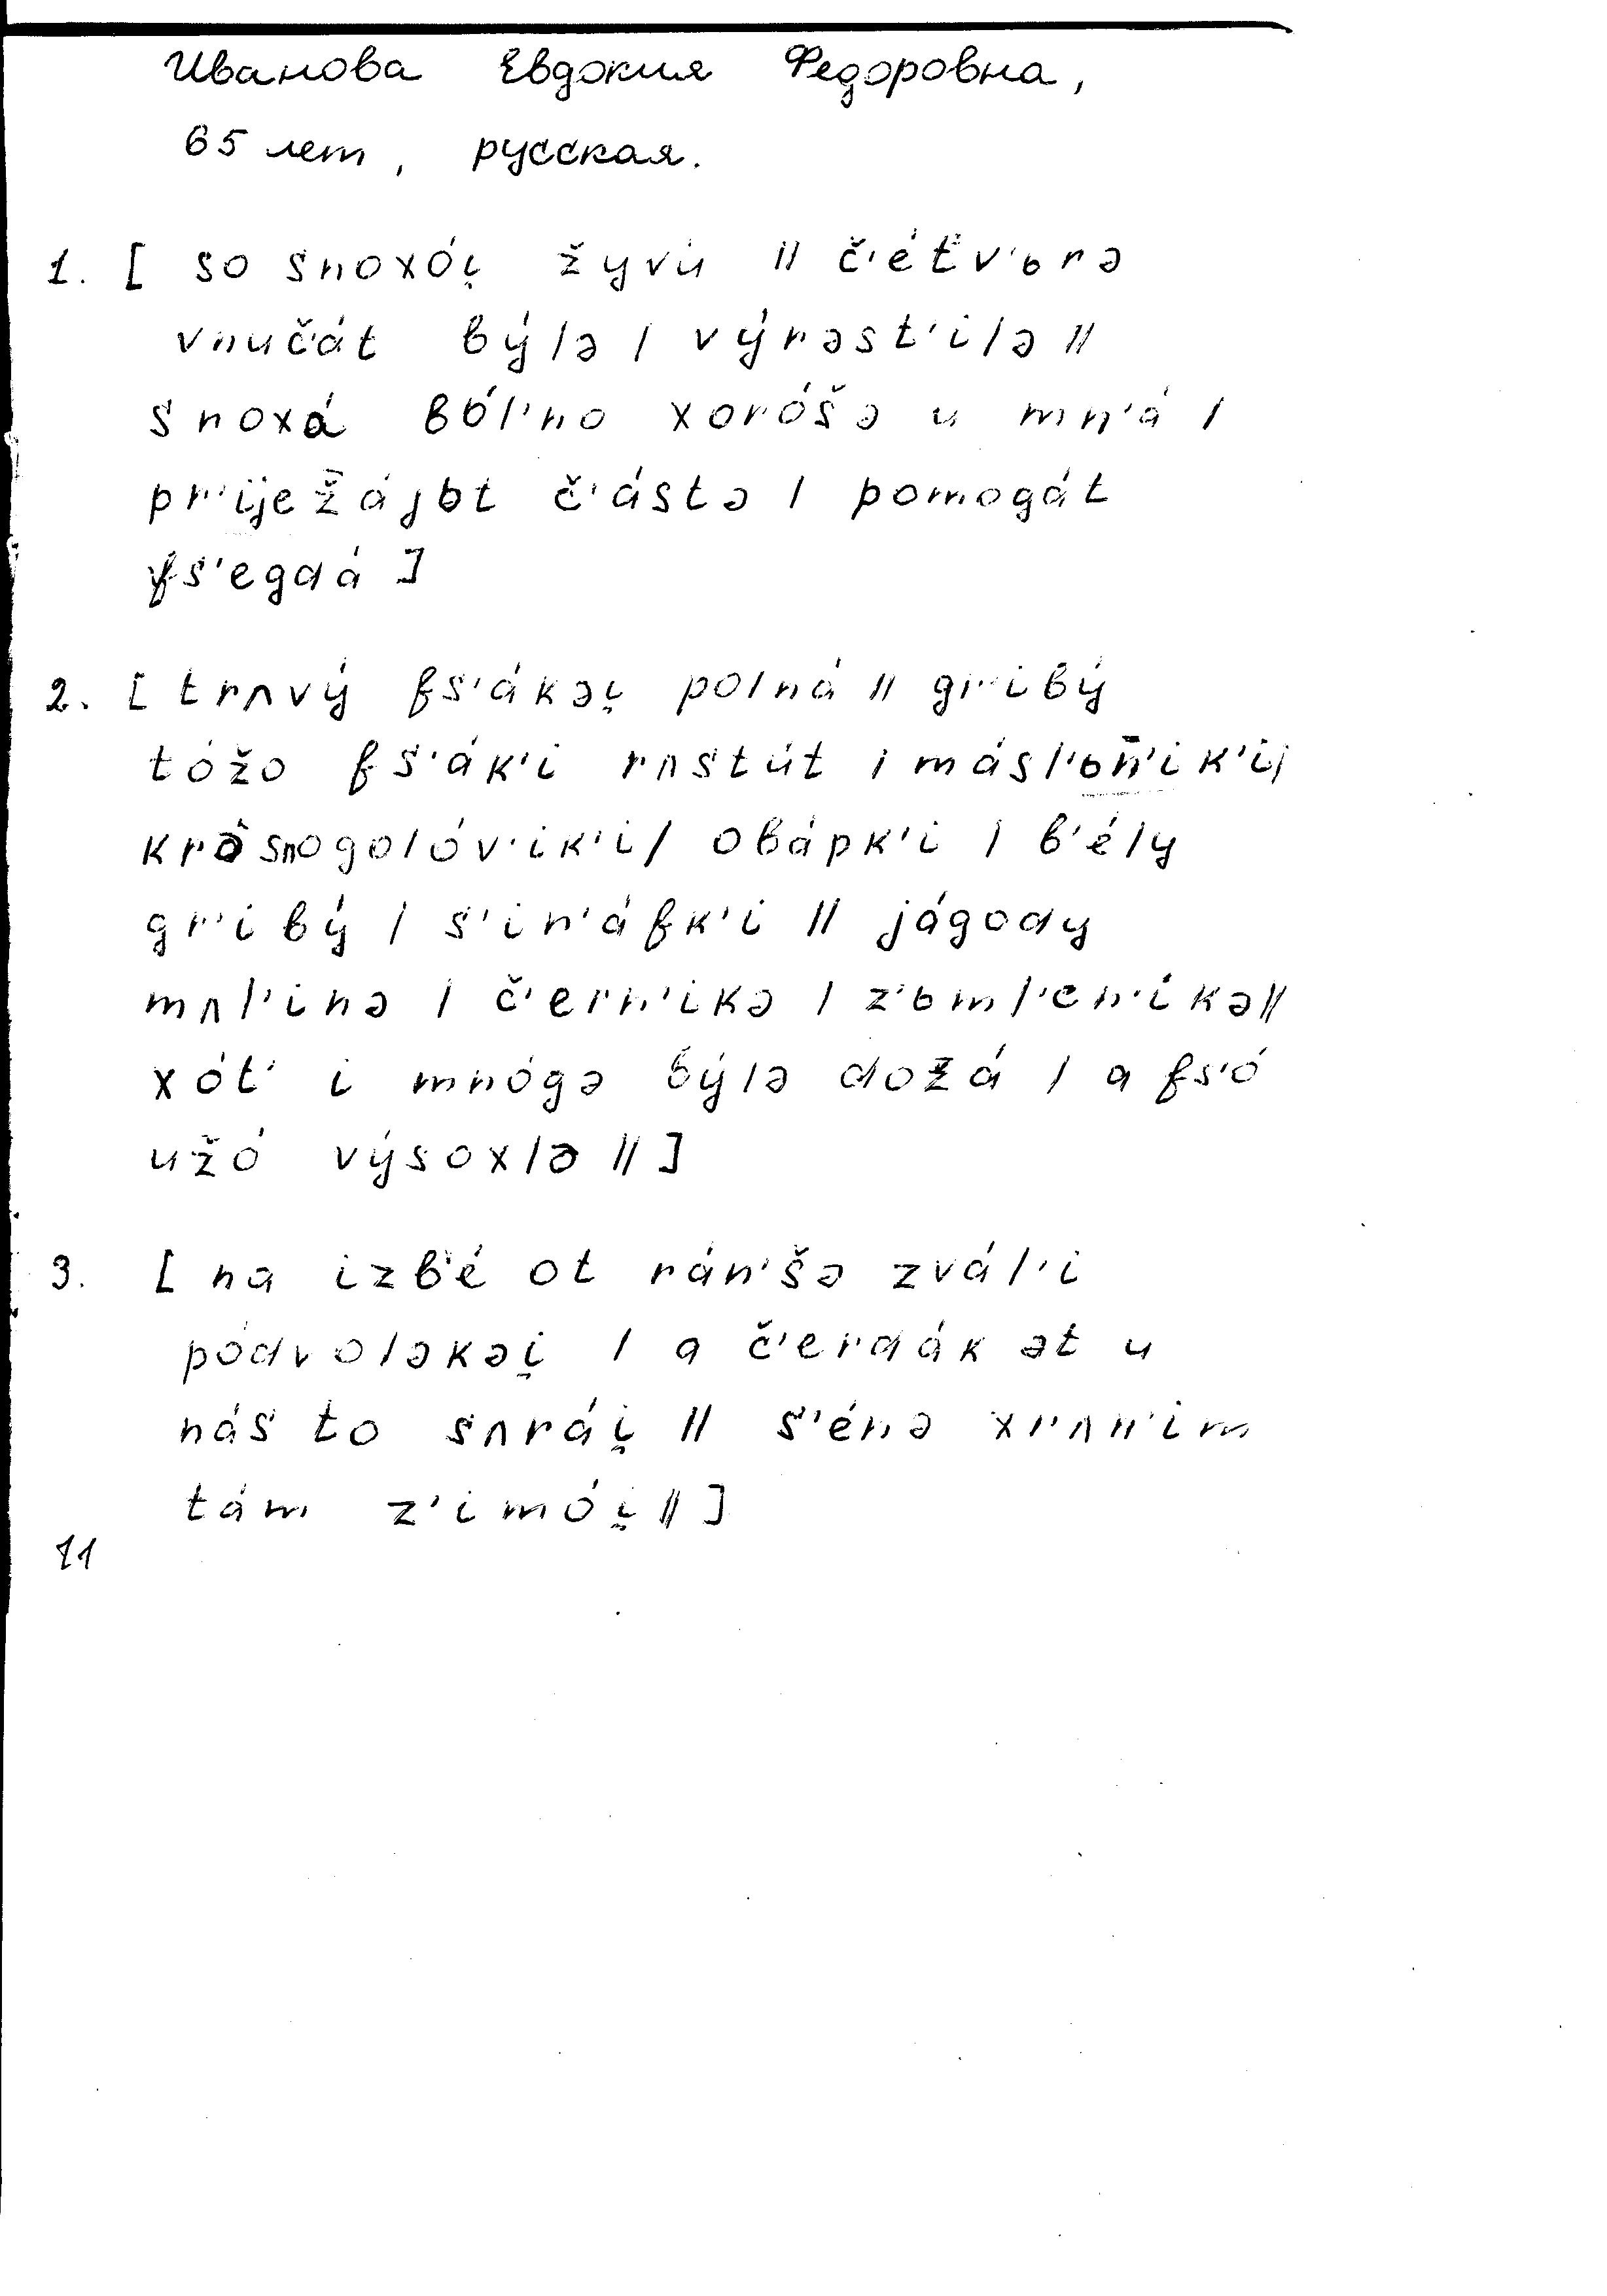 Иванова Евдокия Федоровна,
65 лет, русская.
1. [ so snoxói̯ žyvú || č'ét'v'ьrə
vnučát býlə | výrəst'ilə ||
snoxá ból'no xoróšə u mn'á |
pr'ijež̄ájьt č'ástə | pomogát
fs'egdá ]
2. [ trʌvý fs'ákəi̯ polná || gr'ibý
tóžo fs'ák'i rʌstút | másl'ьn̄'ik'i|
kràsnogolóv'ik'i| obápk'i | b'ély
gr'ibý | s'in'áfk'i || jágody
mʌl'inə | č'ern'ikə | z'ьml'en'íkə||
xót' i mnógə býlə dož̄á | a fs'ó
užó výsoxlə || ]
3. [ na izb'é ot rán'šə zvál'i
pódvoləkəi̯ | a č'erdák ət u
nás to sʌrái̯ || s'énə xrʌn'im
tám z'imói̯ || ]
11